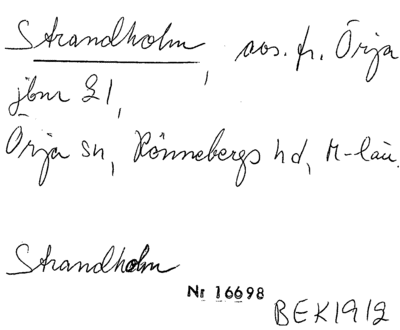 Strandholm, avs. fr. Örja
jbnr 21,
Örja sn, Rönnebergs hd, M-län.
Strandholm
Nr 16698
BEK1912